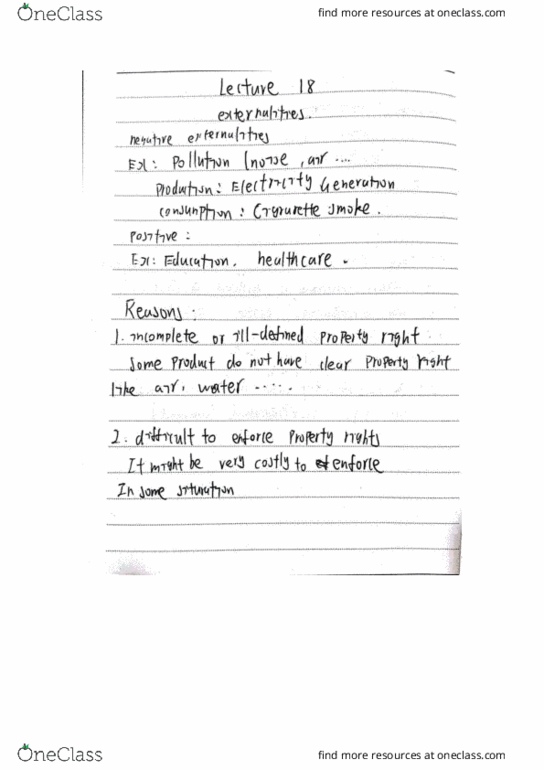 OneClass
find more resources at oneclass.com
Lecture 18
externalities.
negative externalities
Ex: Pollution (noise, air ...
Prodution: Electricity Generation
consumption: Cigurette smoke.
Positive:
Ex: Education. healthcare.
Reasons:
1. incomplete or ill-defined property right
Some product do not have clear property right
like air, water .....
2. difficult to enforce Property rights
It might be very costly to enforce
In some situration
OneClass
find more resources at oneclass.com